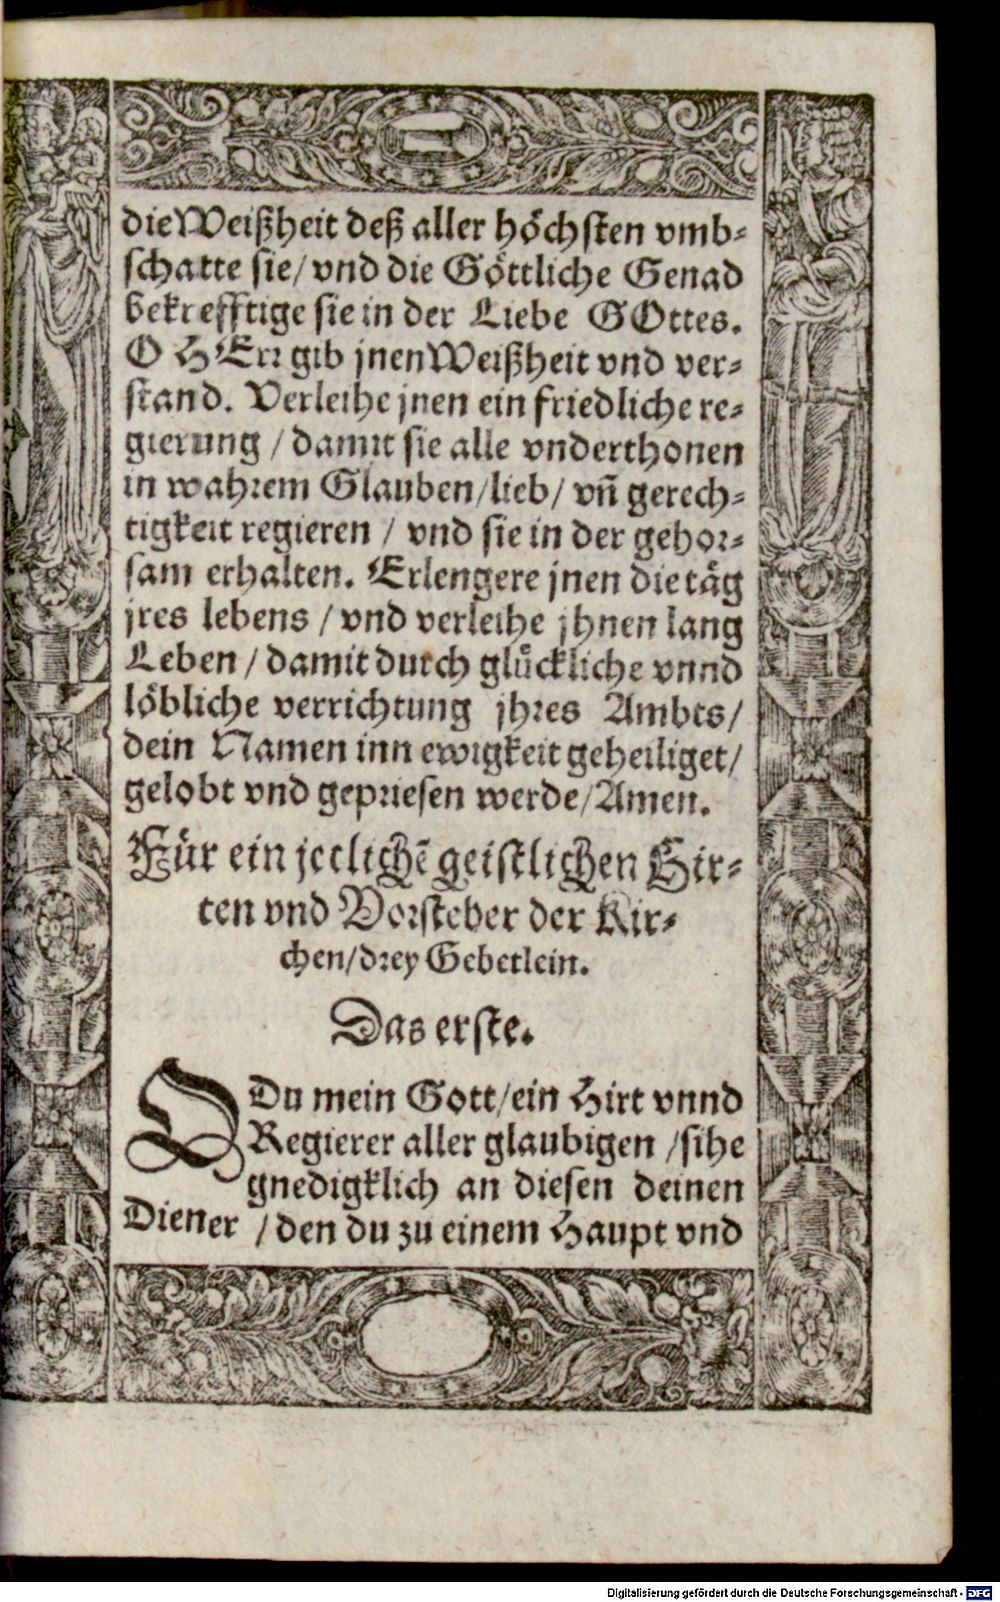 die Weißheit deß aller höchsten vmb⸗
schatte sie/ vnd die Göttliche Genad
bekrefftige sie in der Liebe GOttes.
O HErr gib jnen Weißheit vnd ver⸗
stand. Verleihe jnen ein friedliche re⸗
gierung / damit sie alle vnderthonen
in wahrem Glauben/lieb/ vñ gerech⸗
tigkeit regieren / vnd sie in der gehor⸗
sam erhalten. Erlengere jnen die täg
jres lebens / vnd verleihe jhnen lang
Leben / damit durch glückliche vnnd
löbliche verrichtung jhres Ambts/
dein Namen inn ewigkeit geheiliget/
gelobt vnd gepriesen werde/Amen.
Für ein jetlichẽ geistlichen Hir⸗
ten vnd Vorsteher der Kir⸗
chen/drey Gebetlein.
Das erste.
O Du mein Gott/ein Hirt vnnd
Regierer aller glaubigen /sihe
gnedigklich an diesen deinen
Diener /den du zu einem Haupt vnd
Digitalisierung gefördert durch die Deutsche Forschungsgemeinschaft - DFG